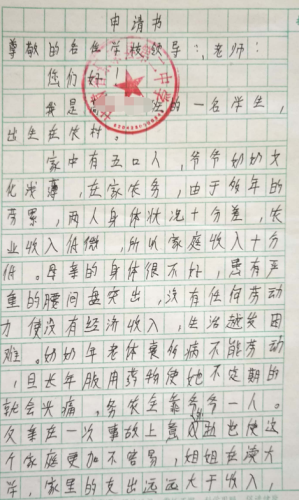 申请书
尊敬的各位学校领导:,老师:
您们好!
我是 的一名学生,
出生在农村。
家中有五口人,爷爷奶奶文
化浅薄,在家农务,由于多年的
劳累,两人身体状况十分差,农
业收入低微,所以家庭收入十分
低。母亲的身体很不好,患有严
重的腰间盘突出,没有任何劳动
力便没有经济收入,生活越发困
难。奶奶年老体衰伤病不能劳动
,且长年服用药物使她不定期的
就会头痛,务农全靠爷爷一人。
父亲在一次事故上 也使这
个家庭更加不容易,姐姐在读大
学,家里的支出远远大于收入,